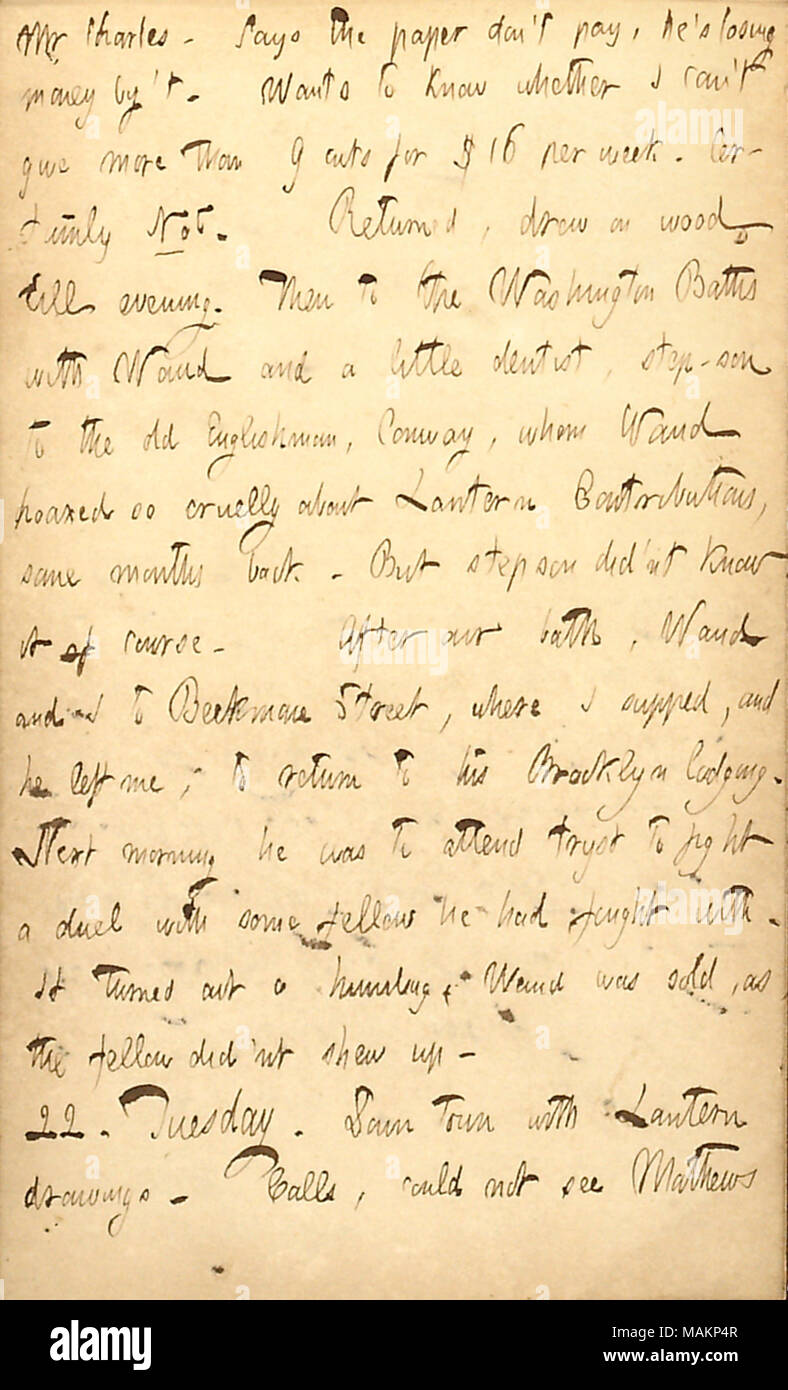 Mr Charles - Says the paper don't pay, he's losing
money by't. Wants to know whether I can't
give more than 9 cuts for $16 per week. Cer-
tainly Not. Returned, drew on wood
till evening. Then to the Washington Baths
with Waud and a little dentist, step-son
to the old Englishman, Conway, whom Waud
hoaxed so cruelly about Lantern Contributions,
some months back. But step son did'nt know
it of course. After our bath, Waud
and I to Beekman Street, where I supped, and
he left me, to return to his Brooklyn lodging.
Next morning he was to attend tryst to fight
a duel with some fellow he had fought with.
It turned out a humbug, Waud was sold, as
the fellow did'nt shew up -
22. Tuesday. Down town with Lantern
drawings. Calls, could not see Mathews
alamy
a
a
alamy
a
a
alamy
a
alamy
Image ID: MAKP4R
www.alamy.com